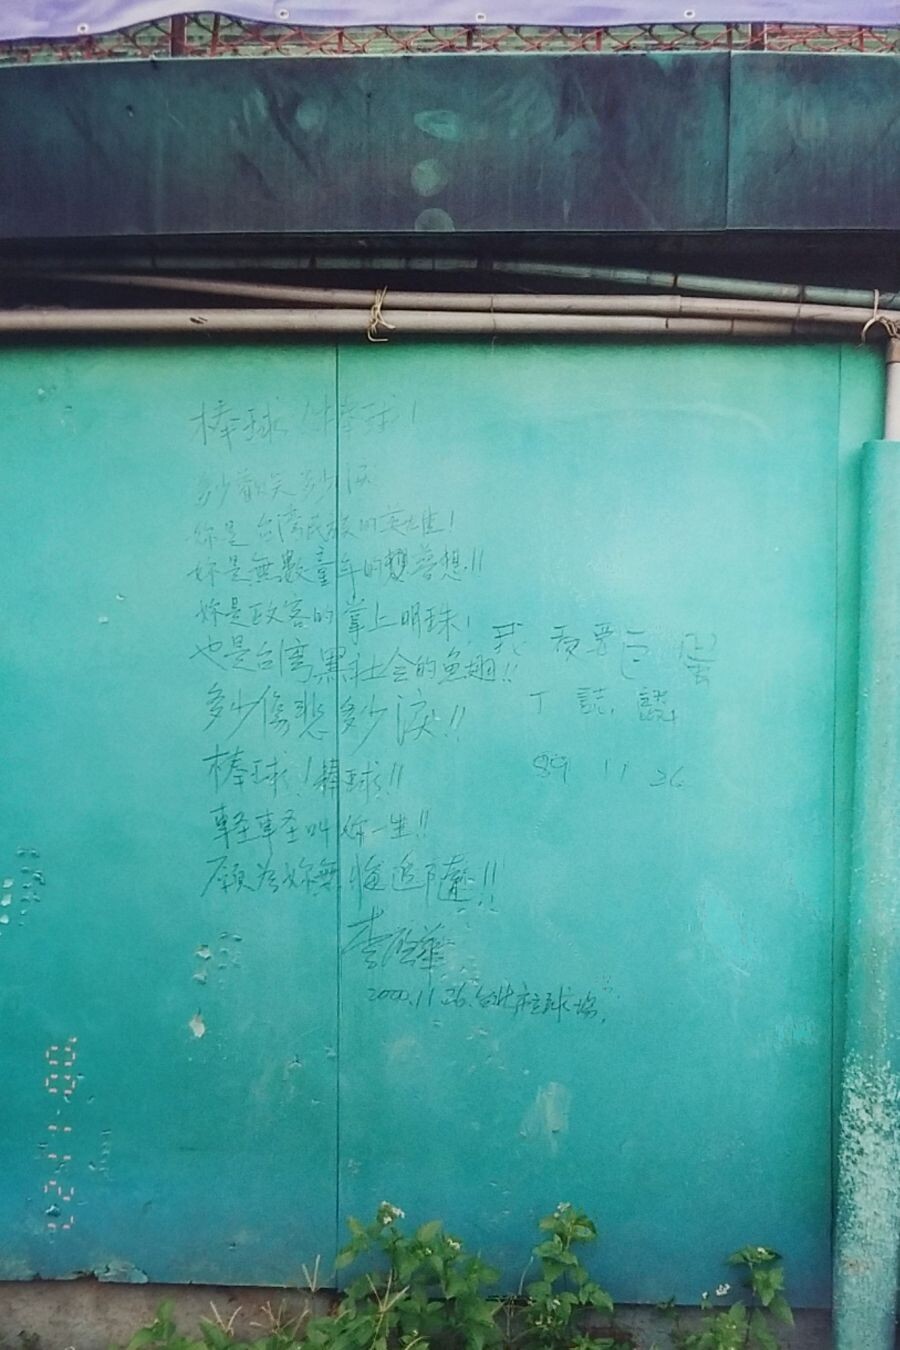 棒球！棒球！
多少歡笑多少淚
妳是台湾民族的英雄！
妳是無數童年的夢想!!
妳是政客的掌上明珠！
也是台湾黑社会的魚翅!!
多少傷悲多少淚!!
棒球！棒球!!
輕輕叫妳一生!!
願為妳無悔追隨!!
2000.11.26.台北市立球場.
我
丁
89 11 26